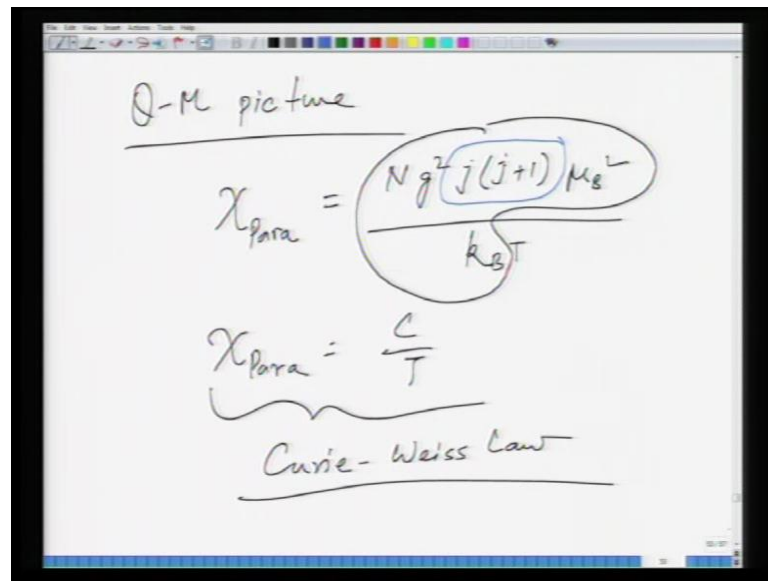 File Edit View Insert Actions Tools Help
Q-M picture
χ_Para = N g² j(j+1) μ_B² / k_B T
χ_Para = C / T
Curie-Weiss Law